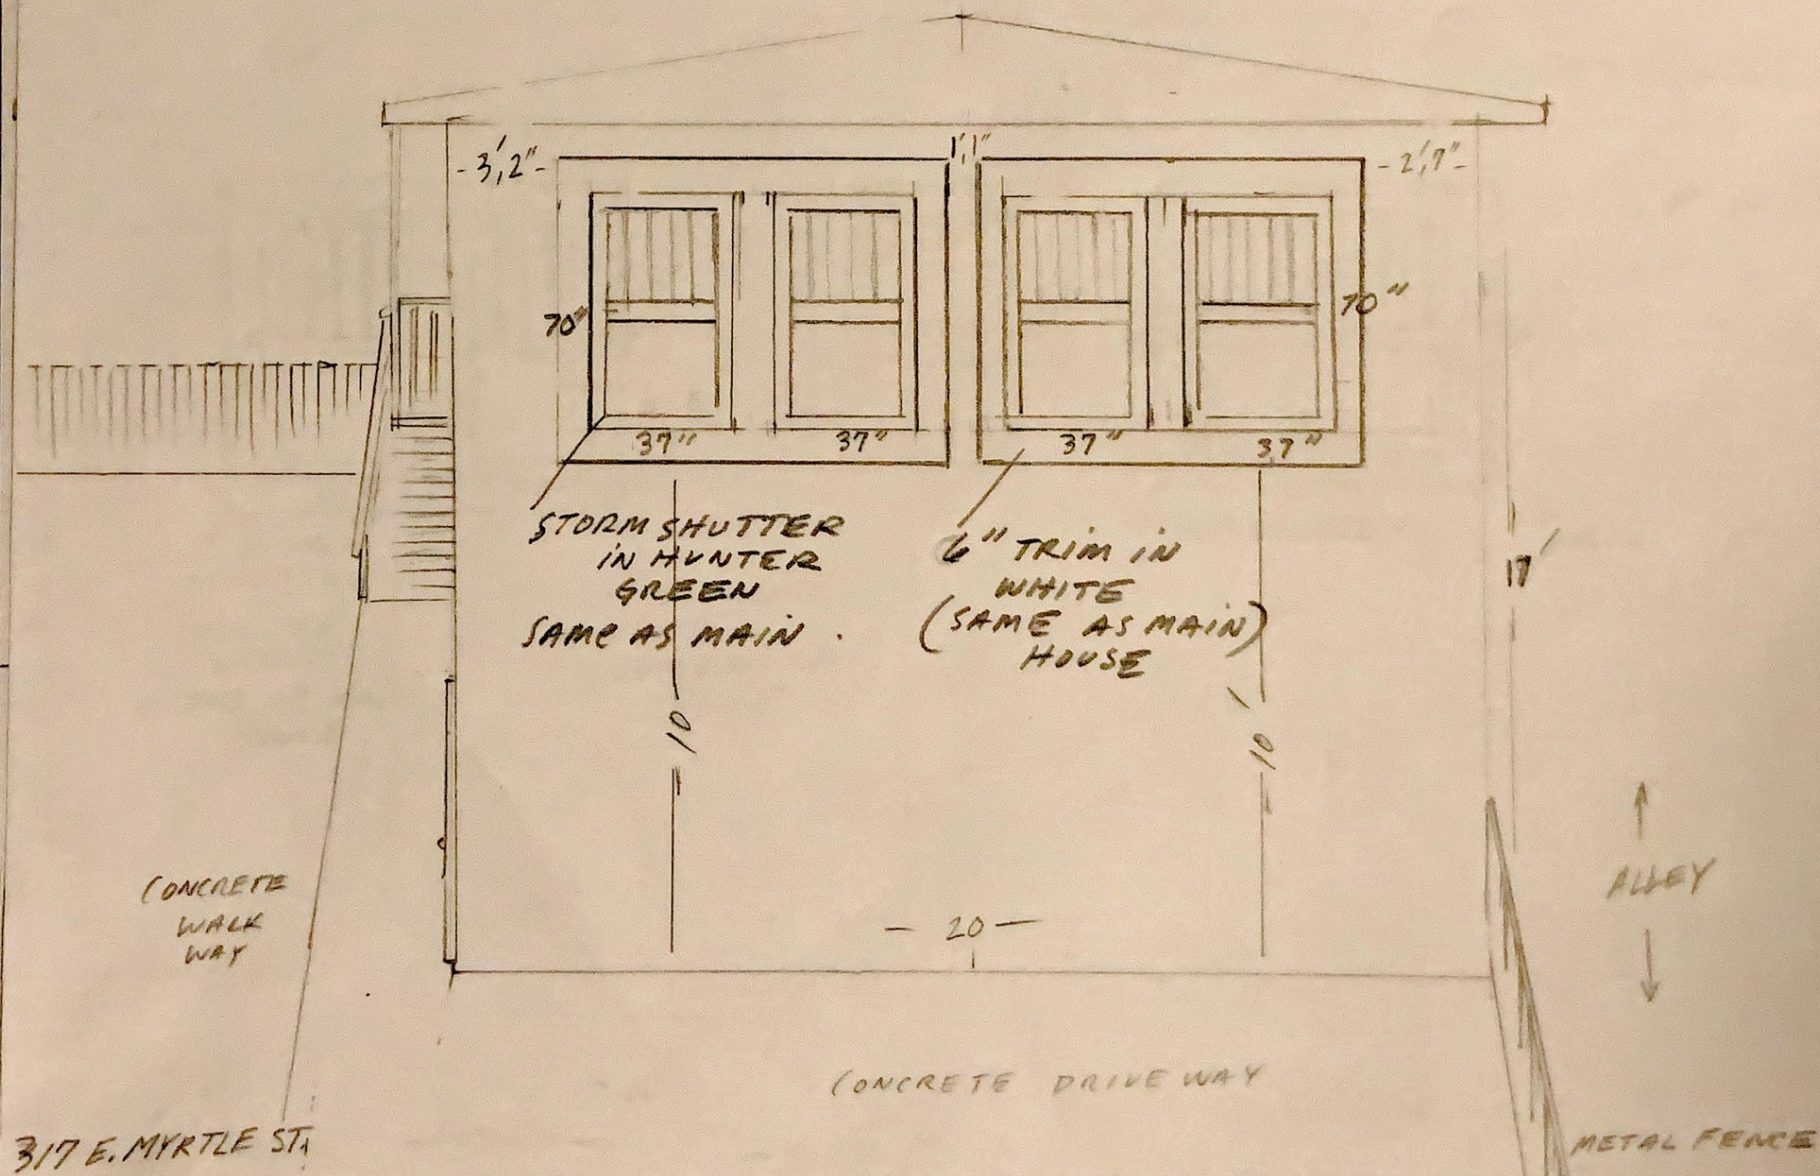 1',1"
- 3',2" -
- 2',7" -
70"
70"
37"
37"
37"
37"
STORM SHUTTER
IN HUNTER
GREEN
SAME AS MAIN .
6" TRIM IN
WHITE
(SAME AS MAIN)
HOUSE
17'
10'
10'
— 20 —
ALLEY
CONCRETE
WALK
WAY
CONCRETE DRIVEWAY
317 E. MYRTLE ST.
METAL FENCE